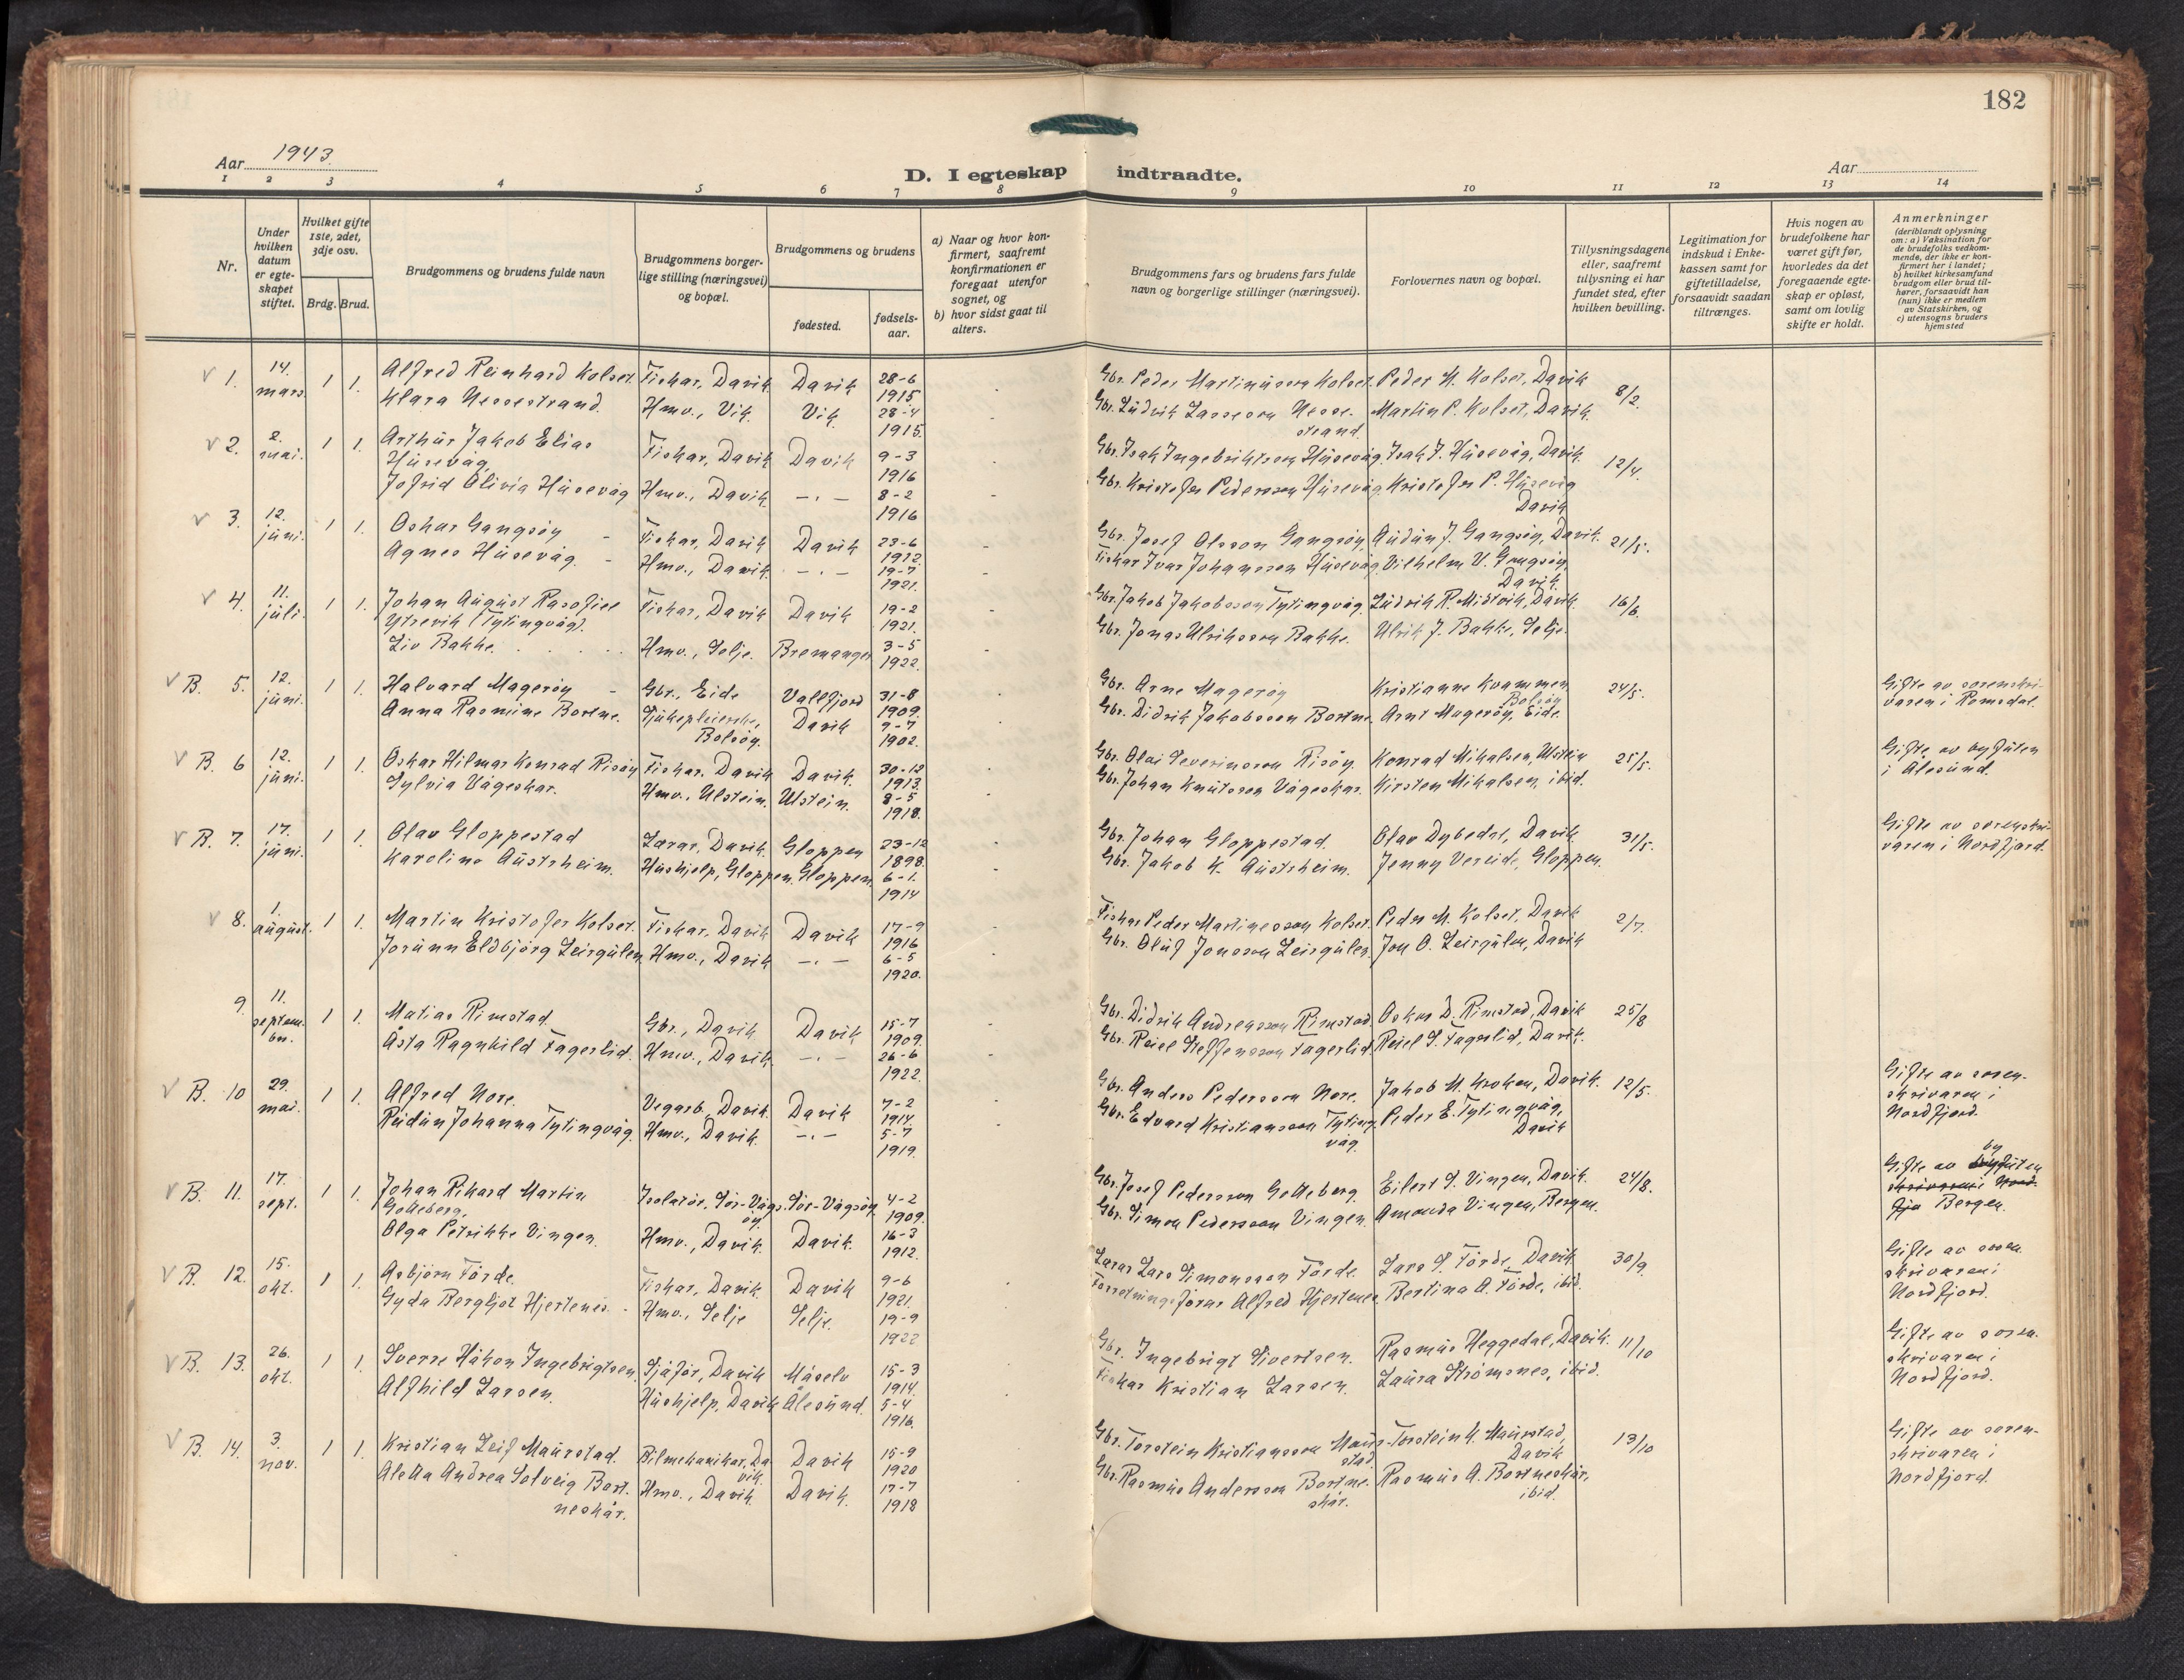 182
Aar 1943
Aar
D. I egteskap indtraadte.
1 2 3 4 5 6 7 8 9 10 11 12 13 14
Nr.
Under hvilken datum er egteskapet stiftet.
Hvilket gifte 1ste, 2det, 3dje osv.
Brdg. Brud.
Brudgommens og brudens fulde navn
Brudgommens borgerlige stilling (næringsvei) og bopæl.
Brudgommens og brudens
fødested.
fødselsaar.
a) Naar og hvor konfirmert, saafremt konfirmationen er foregaat utenfor sognet, og
b) hvor sidst gaat til alters.
Brudgommens fars og brudens fars fulde navn og borgerlige stillinger (næringsvei).
Forlovernes navn og bopæl.
Tillysningsdagene eller, saafremt tillysning ei har fundet sted, efter hvilken bevilling.
Legitimation for indskud i Enkekassen samt for giftetilladelse, forsaavidt saadan tiltrænges.
Hvis nogen av brudefolkene har været gift før, hvorledes da det foregaaende egteskap er opløst, samt om lovlig skifte er holdt.
Anmerkninger
(deriblandt oplysning om: a) Vaksination for de brudefolks vedkommende, der ikke er konfirmert her i landet; b) hvilket kirkesamfund brudgom eller brud tilhører, forsaavidt han (hun) ikke er medlem av Statskirken, og c) utensogns bruders hjemsted
V 1. 14. mars 1 1. Alfred Reinhard Kolset. Fiskar, Davik Davik 28-6 1915 Gbr. Peder Martinusson Kolset. Peder M. Kolset, Davik 8/2.
Klara Nessestrand. Hmv., Vik Vik 28-4 1915. Gbr. Ludvik Lassesson Nessestrand. Martin P. Kolset, Davik.
V 2. 2. mai. 1 1. Arthur Jakob Elias Husevåg. Fiskar, Davik Davik 9-3 1916 Gbr. Isak Ingebriktsson Husevåg. Isak J. Husevåg, Davik. 12/4.
Jofrid Olivia Husevåg Hmv., Davik -"- 8-2 1916 Gbr. Kristofer Pedersson Husevåg. Kristofer P. Husevåg Davik
V 3. 12. juni. 1 1. Oskar Gangsøy - Fiskar, Davik Davik 23-6 1912. Gbr. Josef Olsson Gangsøy, Audun J. Gangsøy, Davik. 21/5.
Agnes Husevåg. - Hmv., Davik -"- 19-7 1921. Fiskar Ivar Johansson Husevåg. Vilhelm V. Gangsøy, Davik.
V 4. 11. juli. 1 1. Johan August Rasofiel Ytrevik (Tytingvåg). Fiskar, Davik Davik 19-2 1921. Gbr. Jakob Jakobsson Tytingvåg. Ludvik R. Midtvik, Davik. 16/6.
Liv Bakke. Hmv., Selje. Bremanger 3-5 1922. Gbr. Jonas Ulriksson Bakke. Ulrik J. Bakke, Selje.
V B. 5. 12. juni. 1 1. Halvard Magerøy - Gbr., Eide Vallfjord 31-8 1909. Gbr. Arne Magerøy Kristianne Kvammen, Bolsøy 24/5. Gifte av sorenskrivaren i Romsdal.
Anna Rasmine Bortne. Sjukepleierske, Bolsøy. Davik 9-7 1902. Gbr. Didrik Jakobsson Bortne. Arnt Magerøy, Eide.
V B. 6 12. juni. 1 1. Oskar Hilmar Konrad Risøy Fiskar. Davik Davik. 30-12 1913. Gbr. Olai Severinsson Risøy. Konrad Mikalsen, Ulstein 25/5. Gifte av byfuten i Ålesund.
Sylvia Vågeskar. Hmv., Ulstein. Ulstein. 8-5 1918. Gbr. Johan Knutsson Vågeskar. Kirsten Mikalsen, ibid.
V B. 7. 17. juni. 1 1. Olav Gloppestad Lærar, Davik. Gloppen 23-12 1898. Gbr. Johan Gloppestad. Olav Dybedal, Davik. 31/5. Gifte av sorenskrivaren i Nordfjord.
Karoline Austrheim. Hushjelp, Gloppen. Gloppen. 6-1. 1914 Gbr. Jakob K. Austrheim. Jenny Vereide, Gloppen.
V 8. 1. august. 1 1. Martin Kristofer Kolset. Fiskar, Davik Davik 17-9 1916 Fiskar Peder Martinesson Kolset. Peder M. Kolset, Davik 2/7.
Jorunn Eldbjørg Leirgulen. Hmv., Davik -"- 6-5 1920. Gbr. Oluf Jonsson Leirgulen. Jon O. Leirgulen, Davik
9 11. september. 1 1. Matias Rimstad. Gbr., Davik Davik 15-7 1909. Gbr. Didrik Andreasson Rimstad. Oskar D. Rimstad, Davik 25/8
Åsta Ragnhild Fagerlid. Hmv., Davik. -"- 26-6 1922. Gbr. Reiel Steffensson Fagerlid. Reiel S. Fagerlid, Davik.
V B. 10 29. mai. 1 1. Alfred Nore. Vegarb. Davik. Davik 7-2 1914. Gbr. Anders Pedersson Nore. Jakob M. Kroken, Davik. 12/5. Gifte av sorenskrivaren i Nordfjord.
Rudun Johanna Tytingvåg. Hmv., Davik. -"- 5-7 1919. Gbr. Edvard Kristiansson Tytingvåg Peder E. Tytingvåg, Davik
V B. 11. 17. sept. 1 1. Johan Rikard Martin Gotteberg. Isolatør, Sør-Vågsøy. Sør-Vågsøy. 4-2 1909. Gbr. Josef Pedersson Gotteberg. Eilert S. Vingen, Davik. 24/8. Gifte av byfuten skrivaren i Nordfjo Bergen.
Olga Petrikke Vingen. Hmv., Davik. Davik. 16-3 1912. Gbr. Simon Pedersson Vingen. Amanda Vingen, Bergen.
V B. 12. 15. okt. 1 1. Asbjørn Førde. Fiskar, Davik. Davik 9-6 1921. Lærar Lars Simonsson Førde. Lars S. Førde, Davik. 30/9. Gifte av sorenskrivaren i Nordfjord.
Gyda Bergljot Hjertenes - Hmv., Selje Selje. 19-9 1922 Forretningsførar Alfred Hjertenes. Bertina A. Førde, ibid.
V B. 13. 26. okt. 1 1. Sverre Håkon Ingebrigtsen. Sjåfør, Davik Måselv 15-3 1914. Gbr. Ingebrigt Sivertsen. Rasmus Heggedal, Davik. 11/10 Gifte av sorenskrivaren i Nordfjord.
Alfhild Larsen. Hushjelp, Davik Ålesund. 5-4 1916. Fiskar Kristian Larsen. Laura Strømsnes, ibid.
V B. 14. 3. nov. 1 1. Kristian Leif Maurstad. Bilmekanikar, Davik. Davik 15-9 1920 Gbr. Torstein Kristiansson Maurstad Torstein K. Maurstad, Davik 13/10 Gifte av sorenskrivaren i Nordfjord.
Aletta Andrea Solveig Bortneskår. Hmv., Davik. Davik. 17-7 1918 Gbr. Rasmus Andersson Bortneskår. Rasmus A. Bortneskår, ibid.